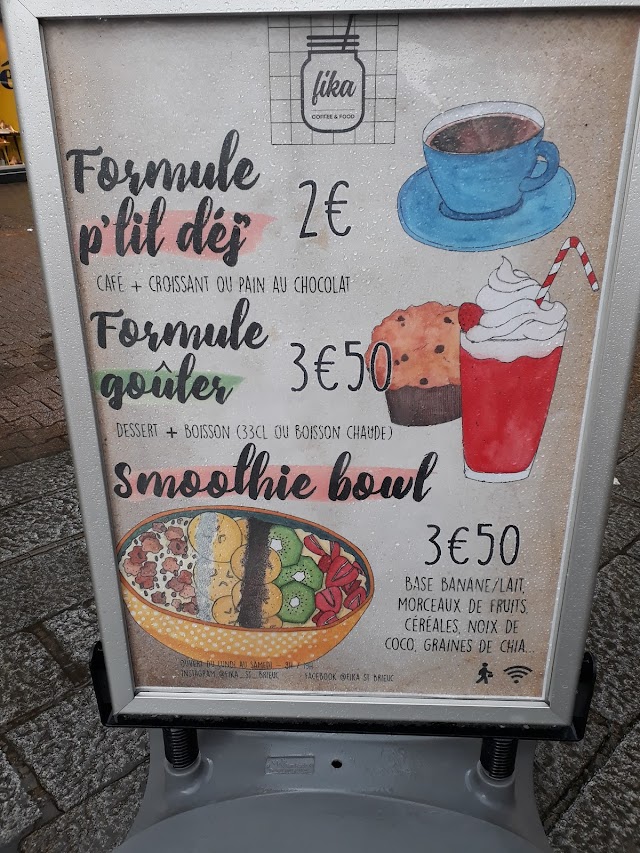 fika
COFFEE & FOOD
Formule
p'tit déj
2€
CAFÉ + CROISSANT OU PAIN AU CHOCOLAT
Formule
goûter
3€50
DESSERT + BOISSON (33CL OU BOISSON CHAUDE)
Smoothie bowl
3€50
BASE BANANE/LAIT,
MORCEAUX DE FRUITS,
CÉRÉALES, NOIX DE
COCO, GRAINES DE CHIA...
OUVERT DU LUNDI AU SAMEDI -
INSTAGRAM @FIKA_ST_BRIEUC FACEBOOK @FIKA ST BRIEUC